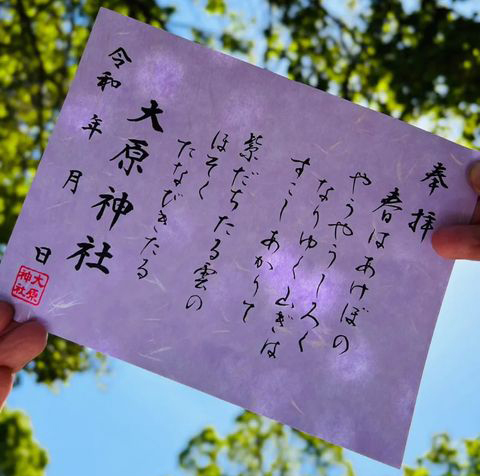 奉拝
春はあけぼの
やうやうしろく
なりゆく山ぎは
すこしあかりて
紫だちたる雲の
ほそく
たなびきたる
大原神社
令和 年 月 日
大原
神社